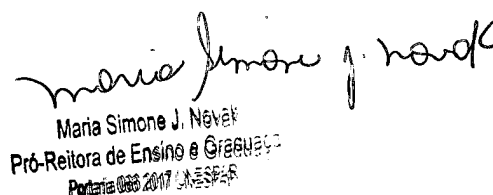 Maria Simone J. Novak
Maria Simone J. Novak
Pró-Reitora de Ensino e Graduação
Portaria 2017 UNESPAR